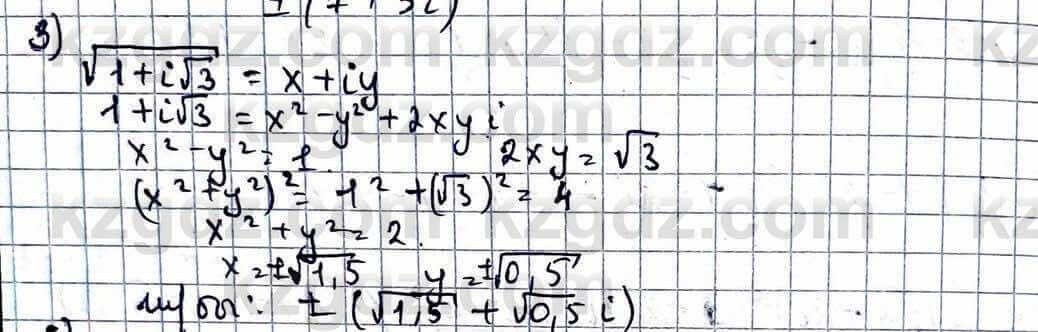 3)
√(1+i√3) = x+iy
1+i√3 = x² -y² + 2xyi
x² -y² = 1 2xy = √3
(x² + y²)² = 1² + (√3)² = 4
x² + y² = 2.
x = ±√1,5 y = ±√0,5
± (√1,5 + √0,5 i)
kzgdz.com